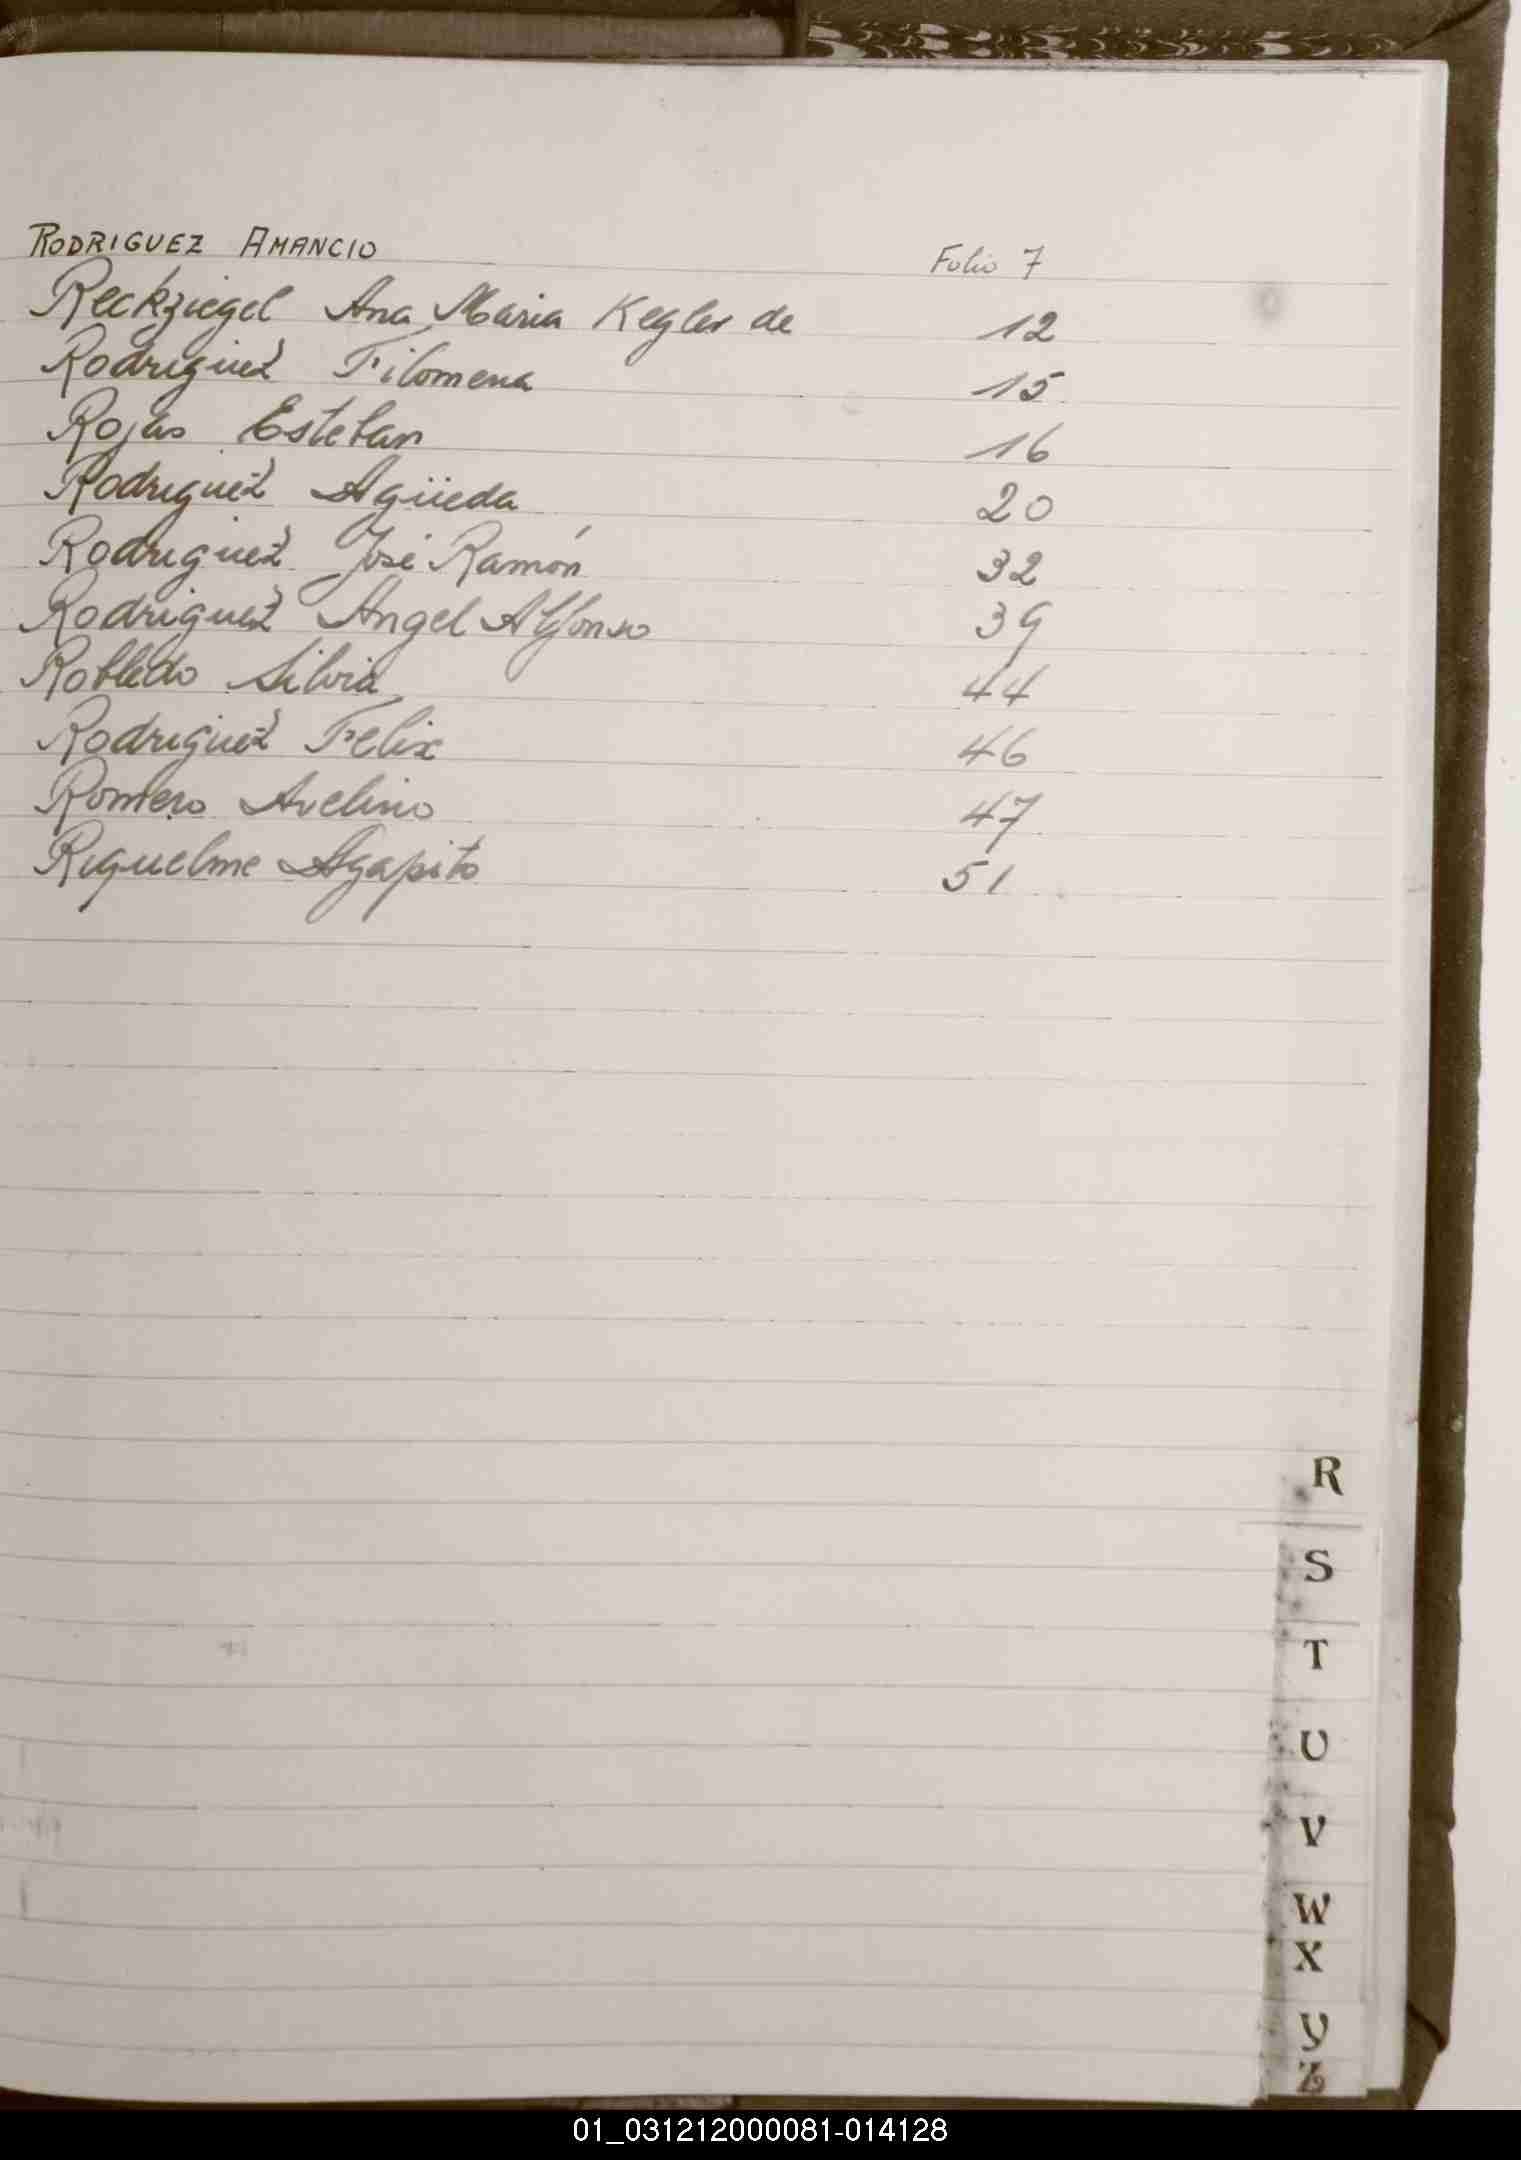 RODRIGUEZ AMANCIO Folio 7
Reckziegel Ana Maria Kegler de 12
Rodriguez Filomena 15
Rojas Esteban 16
Rodriguez Agüeda 20
Rodriguez José Ramón 32
Rodriguez Angel Alfonso 39
Robledo Silvia 44
Rodriguez Felix 46
Romero Avelino 47
Riquelme Agapito 51
R
S
T
U
V
W
X
Y
Z
01_031212000081-014128